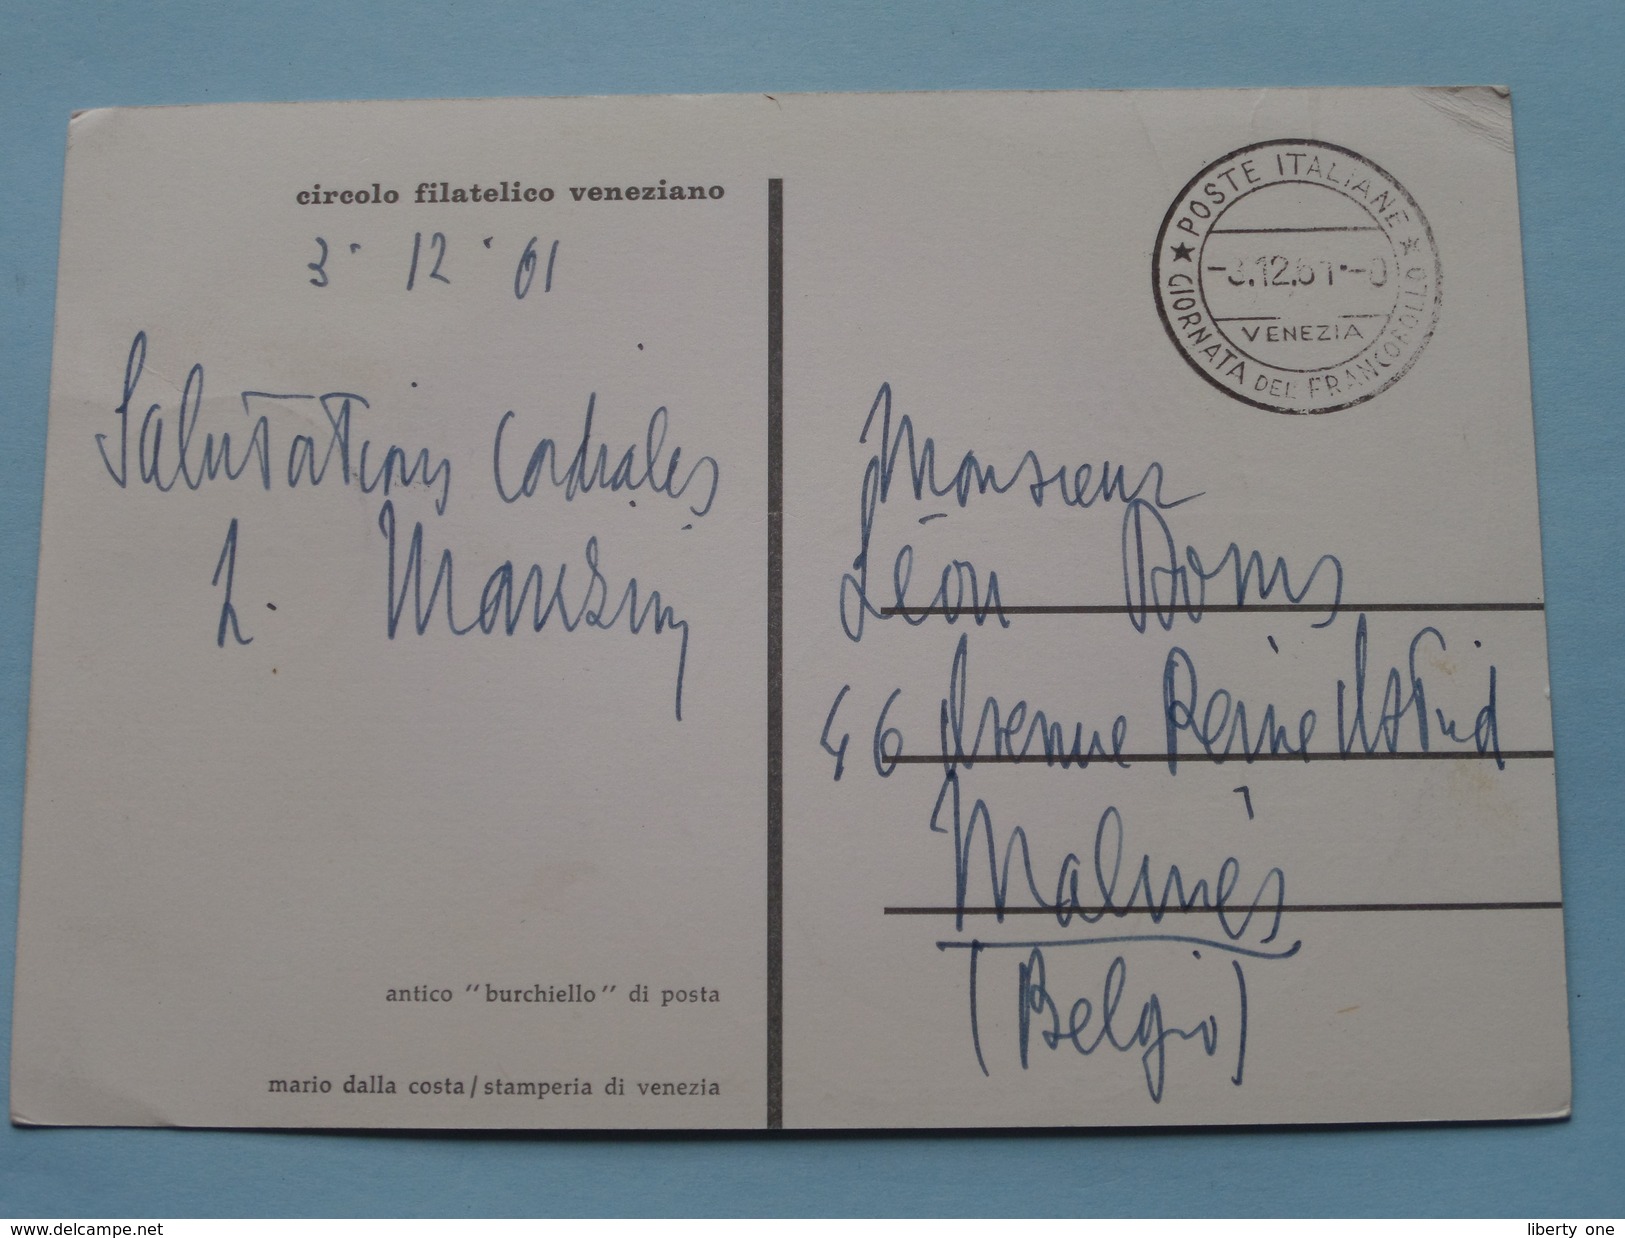 circolo filatelico veneziano
3 · 12 · 61
Salutations Cordiales
L. Manzini
antico "burchiello" di posta
mario dalla costa / stamperia di venezia
★ POSTE ITALIANE ★
-3.12.61·-0
VENEZIA
GIORNATA DEL FRANCOBOLLO
Monsieur
Léon Doms
46 Avenue Reine Astrid
Malines
(Belgio)
www.delcampe.net
liberty one